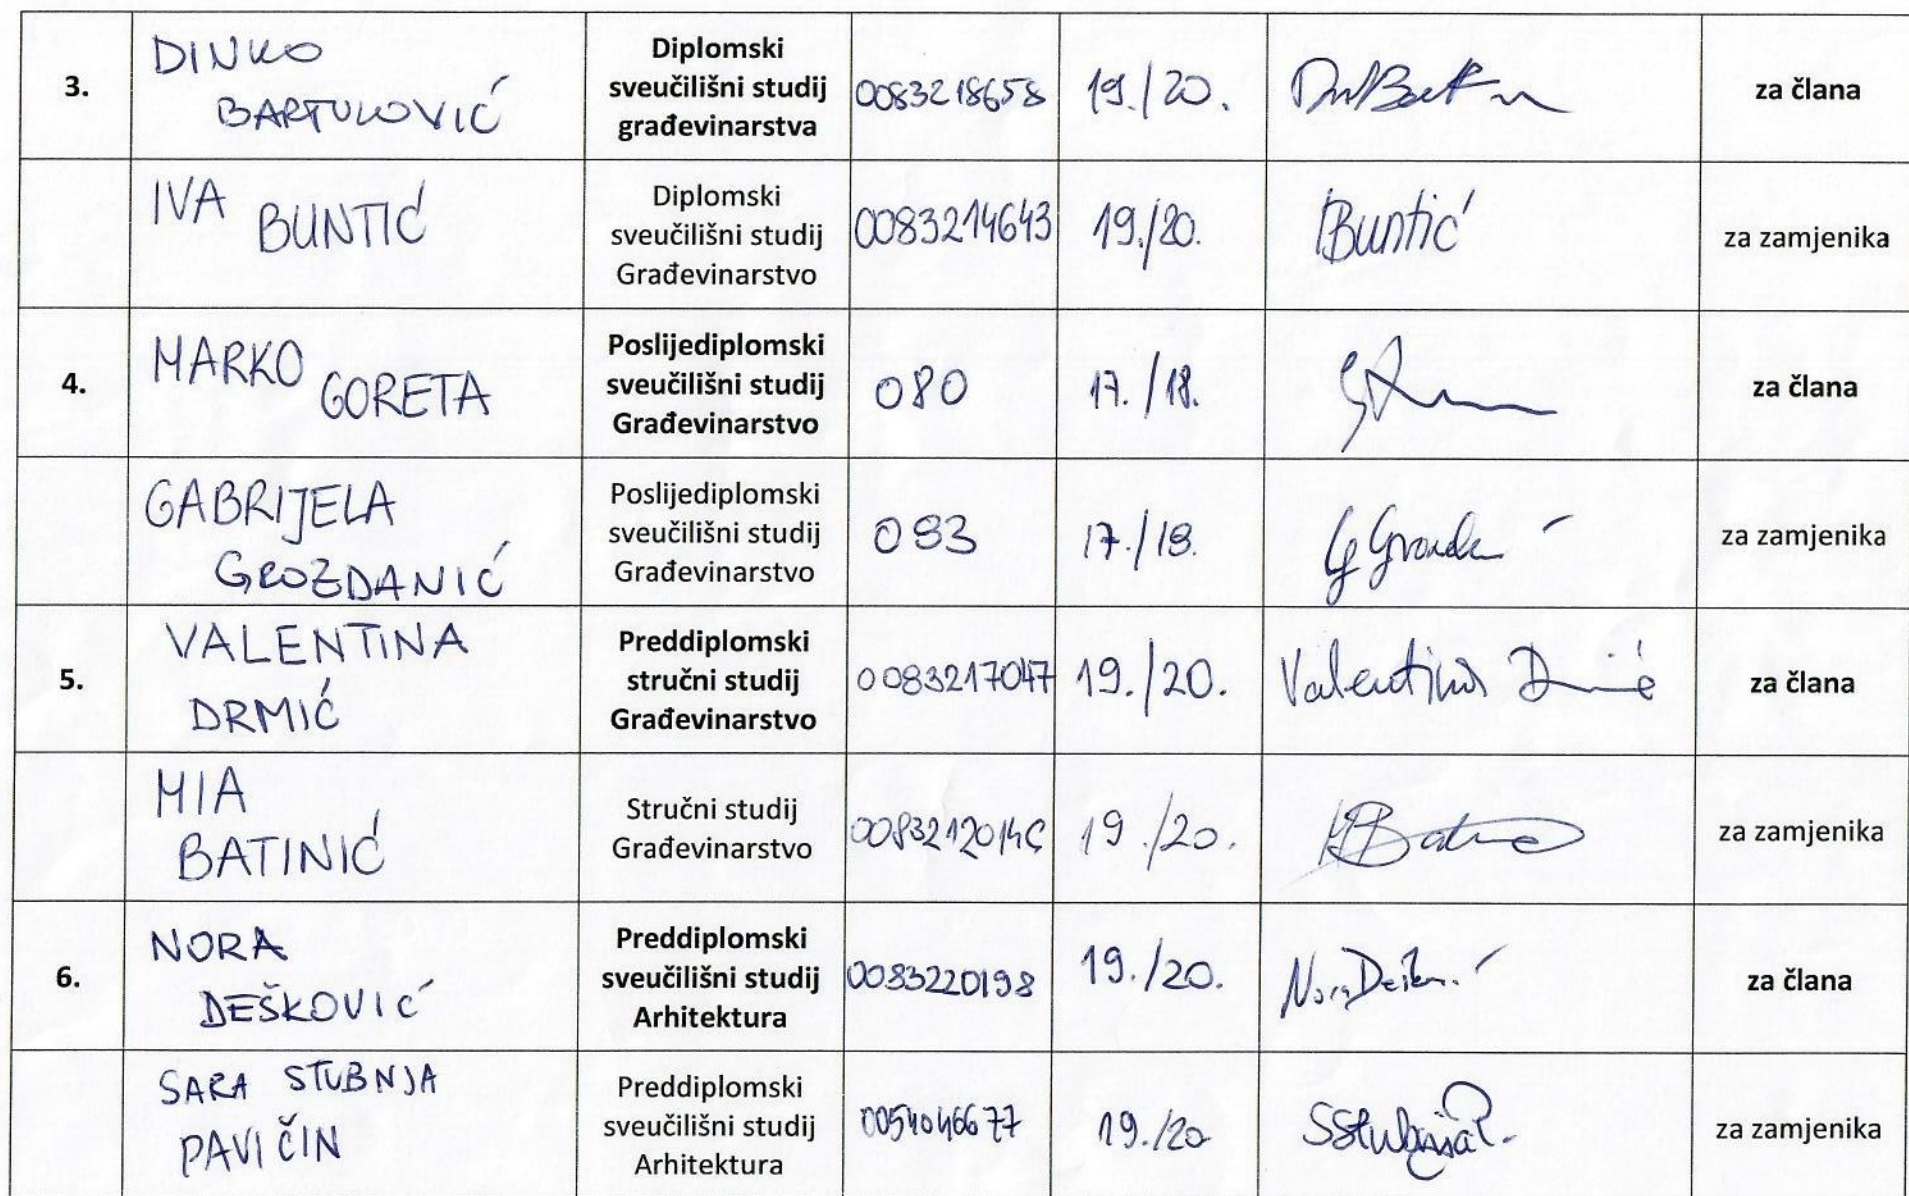 3. DINKO BARTULOVIĆ Diplomski sveučilišni studij građevinarstva 0083218658 19./20. za člana
IVA BUNTIĆ Diplomski sveučilišni studij Građevinarstvo 0083214643 19./20. IBuntić za zamjenika
4. MARKO GORETA Poslijediplomski sveučilišni studij Građevinarstvo 080 17./18. za člana
GABRIJELA GROZDANIĆ Poslijediplomski sveučilišni studij Građevinarstvo 17./18. za zamjenika
5. VALENTINA DRMIĆ Preddiplomski stručni studij Građevinarstvo 0083217047 19./20. Valentina za člana
MIA BATINIĆ Stručni studij Građevinarstvo 19./20. za zamjenika
6. NORA DEŠKOVIĆ Preddiplomski sveučilišni studij Arhitektura 0083220198 19./20. Nora za člana
SARA STUBNJA PAVIČIN Preddiplomski sveučilišni studij Arhitektura 0054046677 19./20 za zamjenika